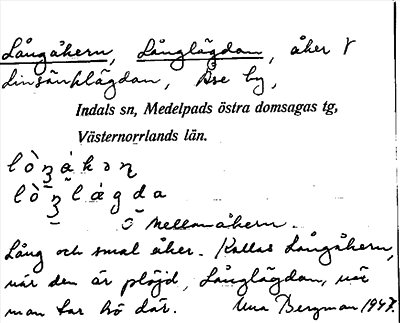 Långåkern, Långlägdan, åker V
Linsänklägdan, Åse by,
Indals sn, Medelpads östra domsagas tg,
Västernorrlands län.
lòŋákəɳ
lòŋlágda
Ö Mellanåkern.
Lång och smal åker. Kallas Långåkern,
när den är plöjd, Långlägdan, när
man tar hö där. Una Bergman 1947.